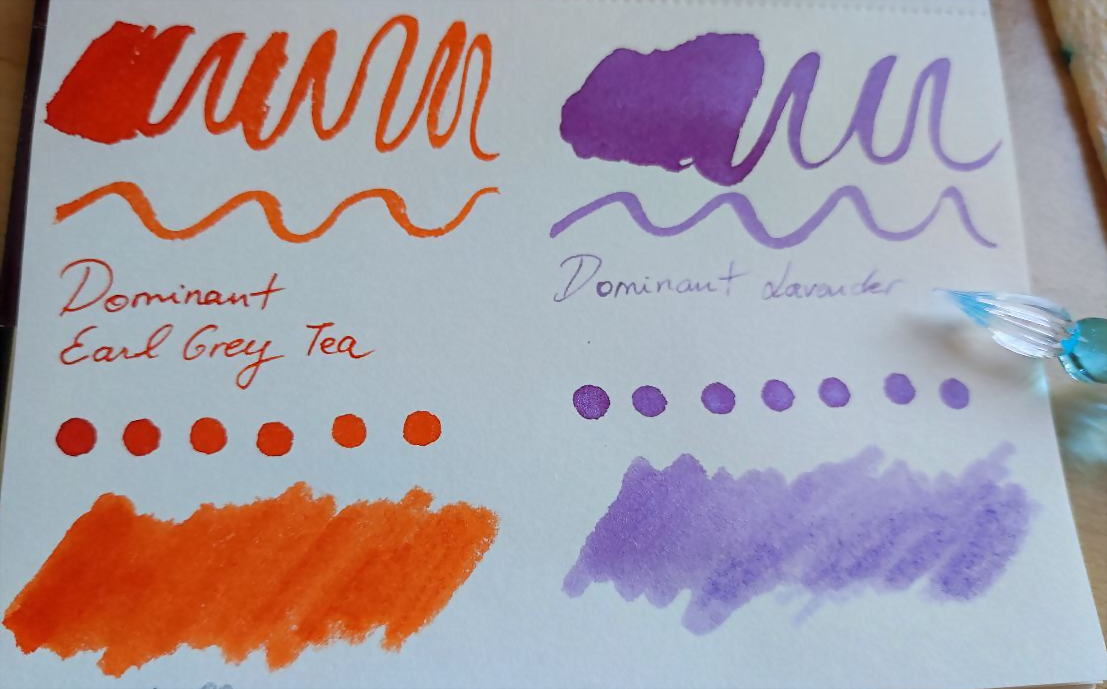 Dominant
Earl Grey Tea
Dominant Lavender